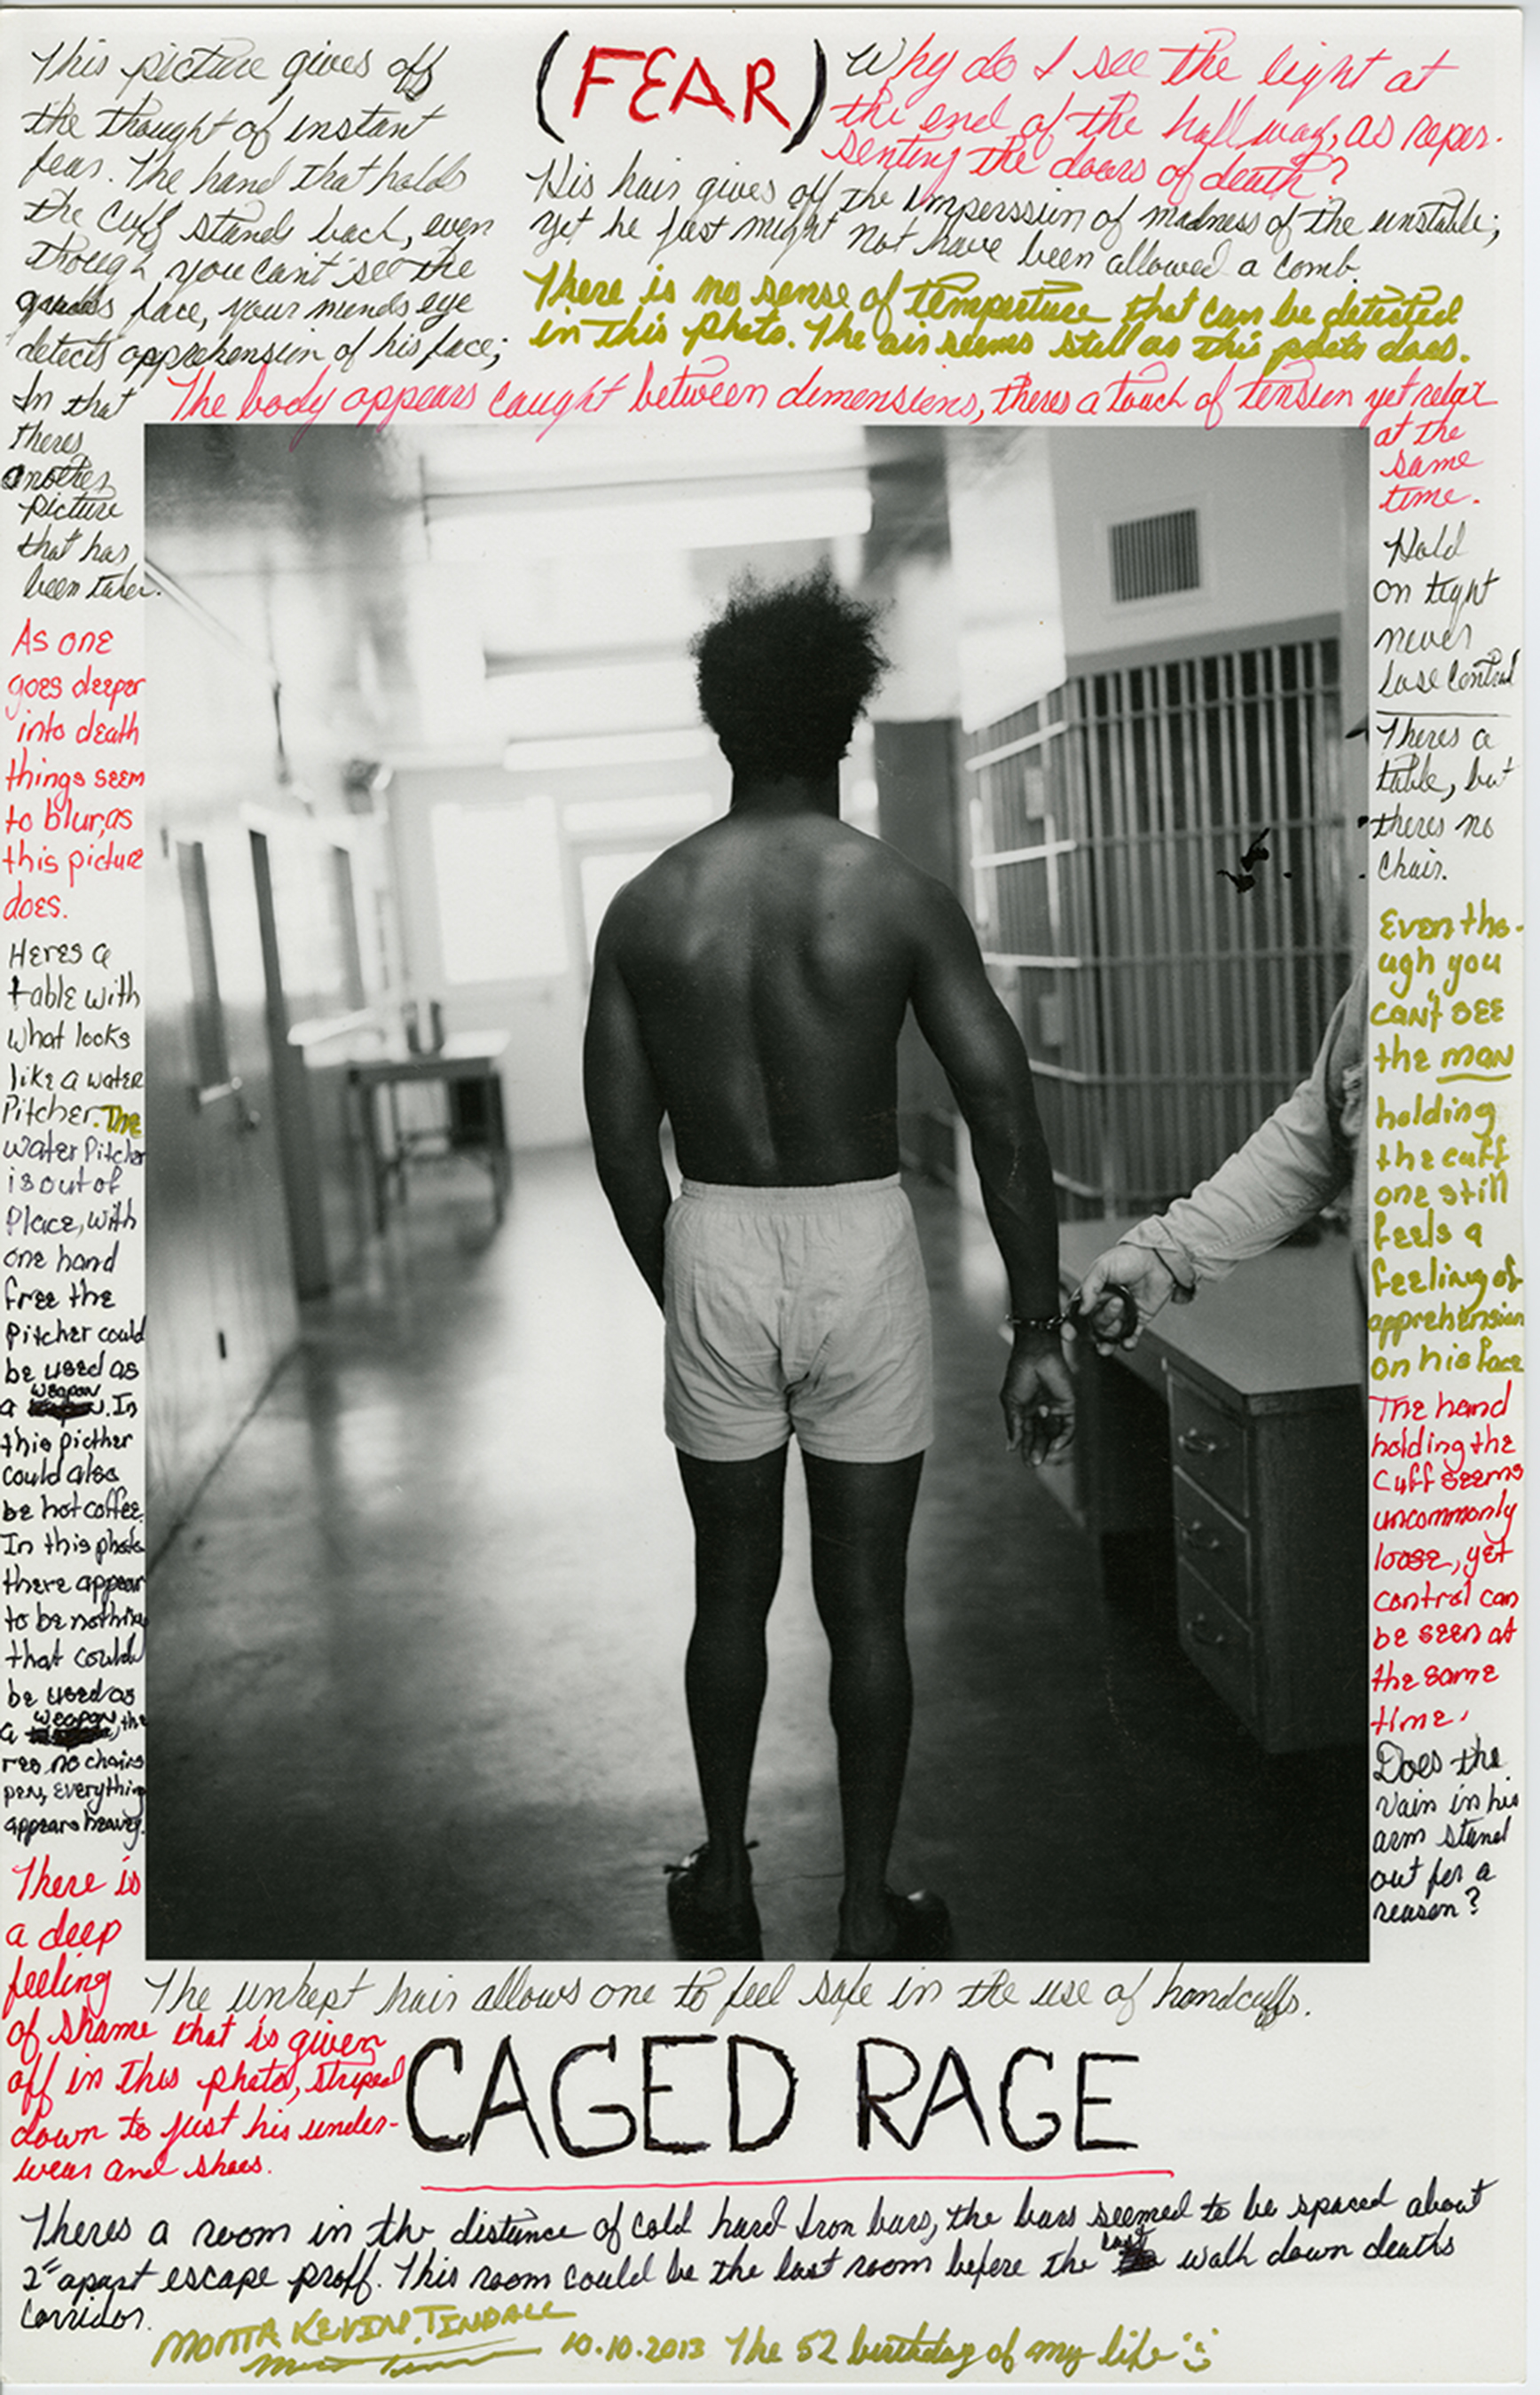 This picture gives off
the thought of instant
fear. The hand that holds
the cuff stands back, even
though you can't see the
guards face, your minds eye
detects apprehension of his face;
In that
theres
another
picture
that has
been taken.
(FEAR)
Why do I see the light at
the end of the hall way, as reper-
senting the doors of death?
His hair gives off the imperssion of madness of the unstable;
yet he just might not have been allowed a comb.
There is no sense of temperture that can be detected
in this photo. The air seems still as this photo does.
The body appears caught between dimensions, theres a touch of tension yet relax
at the
same
time.
As one
goes deeper
into death
things seem
to blur, as
this picture
does.
Heres a
table with
what looks
like a water
Pitcher. The
water Pitcher
is out of
Place, with
one hand
free the
Pitcher could
be used as
a weapon. In
this picther
could also
be hot coffee.
In this photo
there appear
to be nothing
that could
be used as
a weapon, the
res no chairs
pen, everything
appears heavy.
There is
a deep
feeling
of shame that is given
off in this photo, striped
down to just his under-
wear and shoes.
Hold
on tight
never
lose control
Theres a
table, but
theres no
chair.
Even tho-
ugh you
can't see
the man
holding
the cuff
one still
feels a
feeling of
apprehension
on his face
The hand
holding the
cuff seems
uncommonly
loose, yet
control can
be seen at
the same
time.
Does the
vain in his
arm stand
out for a
reason?
The unkept hair allows one to feel safe in the use of handcuffs.
CAGED RAGE
Theres a room in the distance of cold hard Iron bars, the bars seemed to be spaced about
2" apart escape proff. This room could be the last room before the last walk down deaths
corridor.
MONTA KEVIN. TINDALL
10.10.2013 The 52 birthday of my life